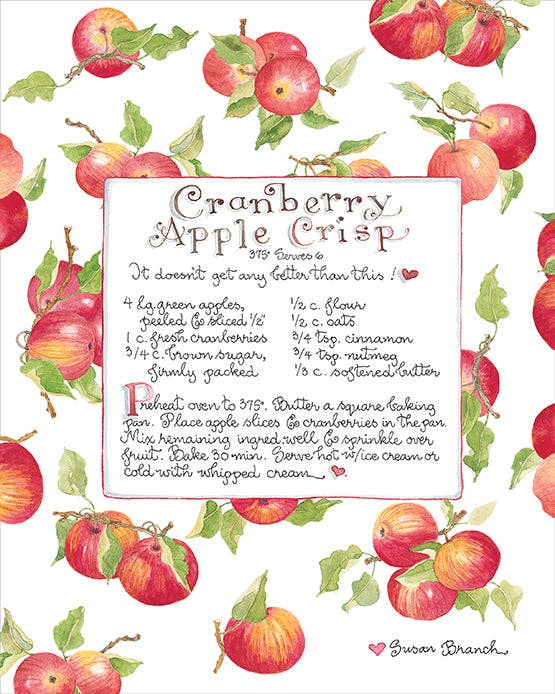 Cranberry
Apple Crisp
375° Serves 6
It doesn't get any better than this!
4 lg. green apples,
peeled & sliced 1/2"
1 c. fresh cranberries
3/4 c. brown sugar,
firmly packed
1/2 c. flour
1/2 c. oats
3/4 tsp. cinnamon
3/4 tsp. nutmeg
1/3 c. softened butter
Preheat oven to 375°. Butter a square baking
pan. Place apple slices & cranberries in the pan.
Mix remaining ingred. well & sprinkle over
fruit. Bake 30 min. Serve hot w/ice cream or
cold with whipped cream.
Susan Branch